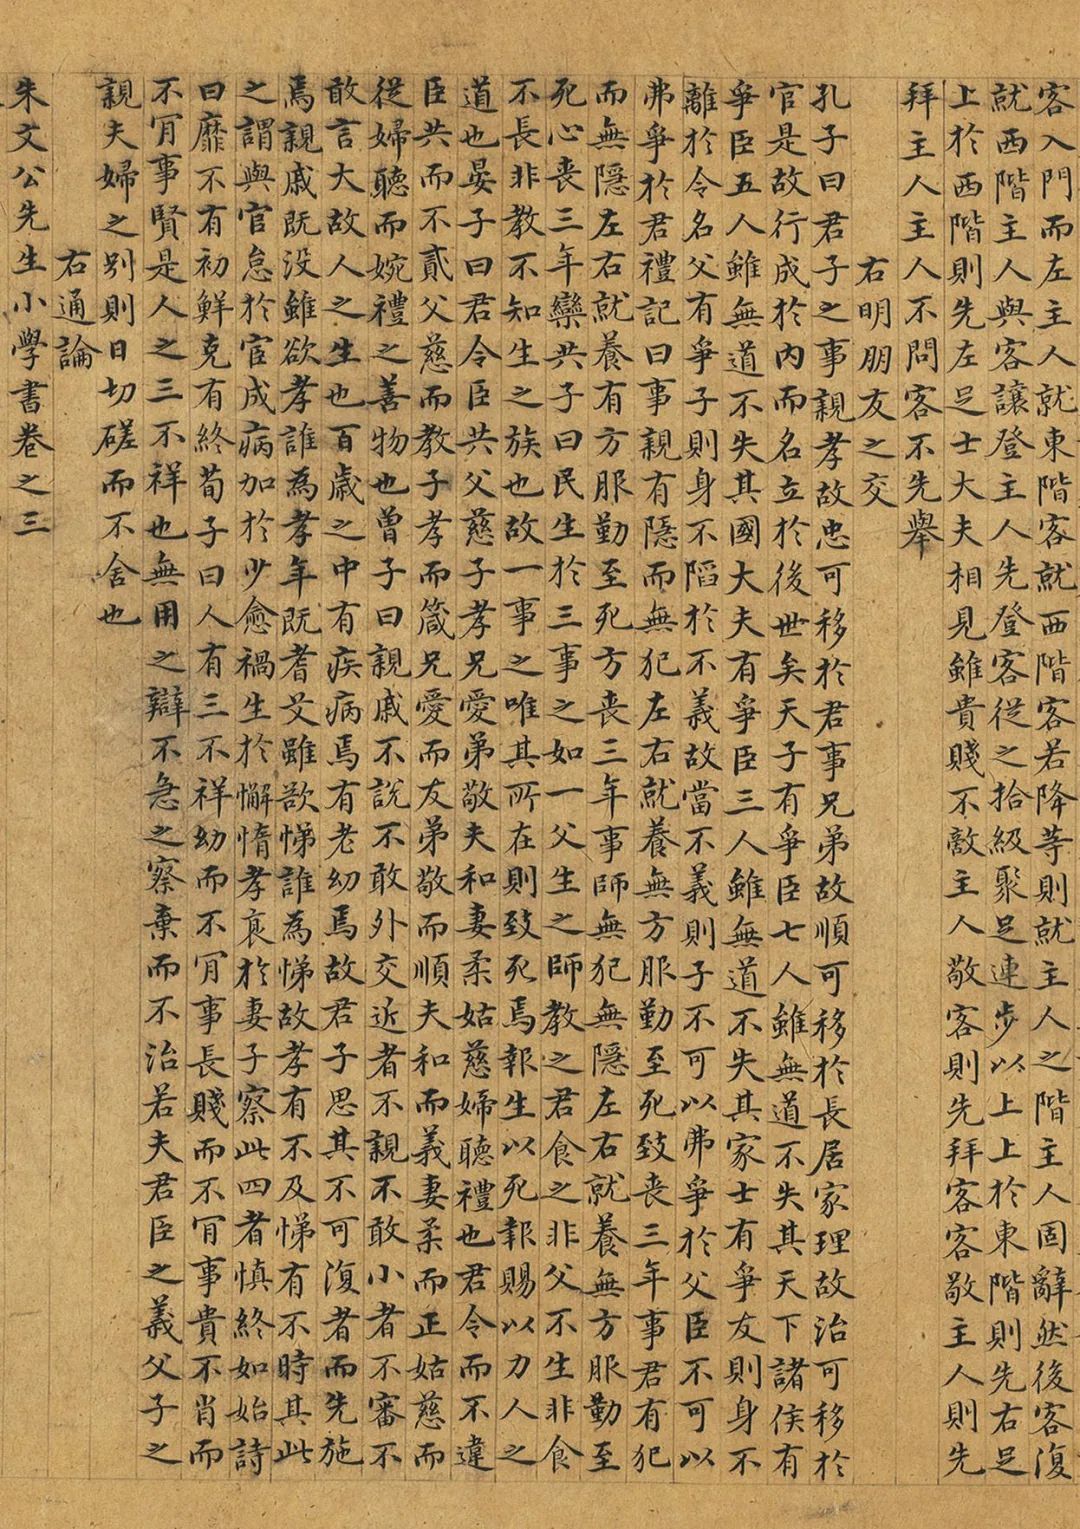 客入門而左主人就東階客就西階客若降等則就主人之階主人固辭然後客復
就西階主人與客讓登主人先登客從之拾級聚足連步以上上於東階則先右足
上於西階則先左足士大夫相見雖貴賤不敵主人敬客則先拜客客敬主人則先
拜主人主人不問客不先舉
右明朋友之交
孔子曰君子之事親孝故忠可移於君事兄弟故順可移於長居家理故治可移於
官是故行成於內而名立於後世矣天子有爭臣七人雖無道不失其天下諸侯有
爭臣五人雖無道不失其國大夫有爭臣三人雖無道不失其家士有爭友則身不
離於令名父有爭子則身不陷於不義故當不義則子不可以弗爭於父臣不可以
弗爭於君禮記曰事親有隱而無犯左右就養無方服勤至死致喪三年事君有犯
而無隱左右就養有方服勤至死方喪三年事師無犯無隱左右就養無方服勤至
死心喪三年欒共子曰民生於三事之如一父生之師教之君食之非父不生非食
不長非教不知生之族也故一事之唯其所在則致死焉報生以死報賜以力人之
道也晏子曰君令臣共父慈子孝兄愛弟敬夫和妻柔姑慈婦聽禮也君令而不違
臣共而不貳父慈而教子孝而箴兄愛而友弟敬而順夫和而義妻柔而正姑慈而
從婦聽而婉禮之善物也曾子曰親戚不說不敢外交近者不親不敢小者不審不
敢言大故人之生也百歲之中有疾病焉有老幼焉故君子思其不可復者而先施
焉親戚既没雖欲孝誰為孝年既耆艾雖欲悌誰為悌故孝有不及悌有不時其此
之謂與官怠於宦成病加於少愈禍生於懈惰孝衰於妻子察此四者慎終如始詩
曰靡不有初鮮克有終荀子曰人有三不祥幼而不肎事長賤而不肎事貴不肖而
不肎事賢是人之三不祥也無用之辯不急之察棄而不治若夫君臣之義父子之
親夫婦之别則日切磋而不舍也
右通論
朱文公先生小學書卷之三